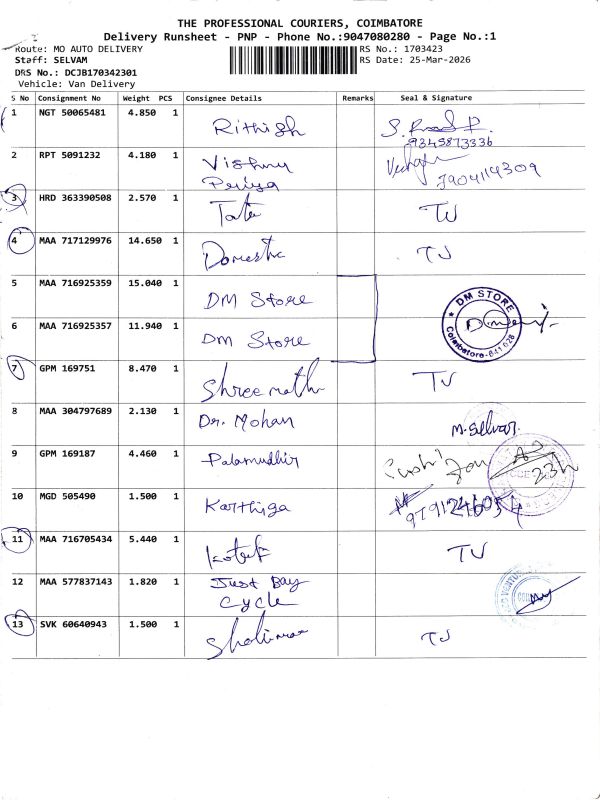 THE PROFESSIONAL COURIERS, COIMBATORE
Delivery Runsheet - PNP - Phone No.:9047080280 - Page No.:1
Route: MO AUTO DELIVERY
RS No.: 1703423
Staff: SELVAM
RS Date: 25-Mar-2026
DRS No.: DCJB170342301
Vehicle: Van Delivery
S No Consignment No Weight PCS Consignee Details Remarks Seal & Signature
1 NGT 50065481 4.850 1 Rithish
9345873336
2 RPT 5091232 4.180 1 Vishnu
Periya 7904114309
3 HRD 363390508 2.570 1 Tata TJ
4 MAA 717129976 14.650 1 Domestic TJ
5 MAA 716925359 15.040 1 DM Store
DM STORE
Coimbatore-641 028
6 MAA 716925357 11.940 1 DM Store
7 GPM 169751 8.470 1 Shree TJ
8 MAA 304797689 2.130 1 Dr. Mohan M. Selvar
9 GPM 169187 4.460 1 Palamudhir
10 MGD 505490 1.500 1 Karthiga
11 MAA 716705434 5.440 1 TJ
12 MAA 577837143 1.820 1 Just Bay
Cycle
13 SVK 60640943 1.500 1 Shalimar TJ